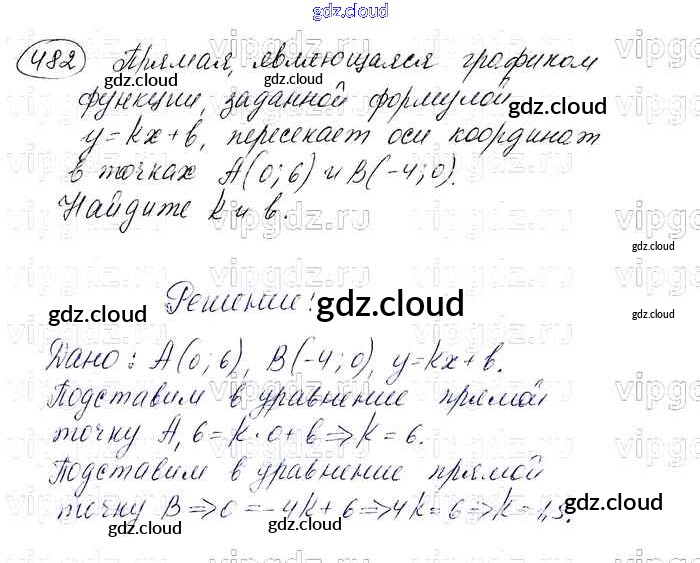 gdz.cloud
482 Прямая, являющаяся графиком
функции, заданной формулой
y=kx+b, пересекает оси координат
в точках A(0;6) и B(-4;0).
Найдите k и b.
Решение:
Дано: A(0;6), B(-4;0), y=kx+b.
Подставим в уравнение прямой
точку A, 6=k·0+b⇒k=6.
Подставим в уравнение прямой
точку B⇒0=-4k+6⇒4k=6⇒k=1,5.
gdz.cloud
gdz.cloud
gdz.cloud
gdz.cloud
gdz.cloud
gdz.cloud
gdz.cloud
gdz.cloud
gdz.cloud
gdz.cloud
gdz.cloud
gdz.cloud
vipgdz.ru